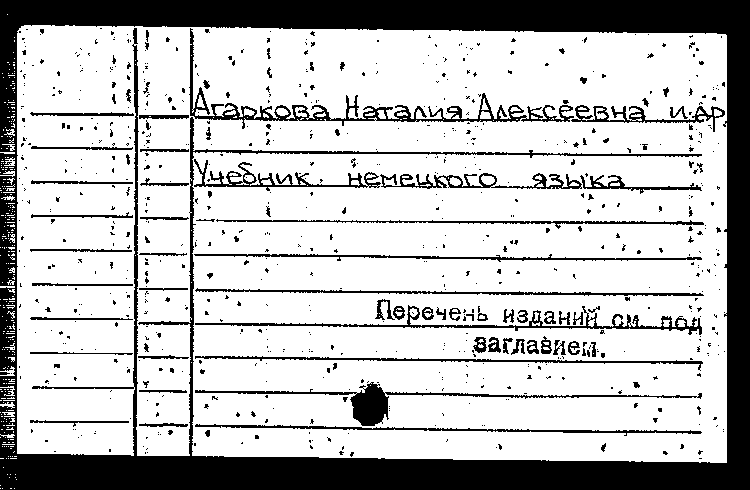 Агаркова Наталия Алексеевна и др
Учебник немецкого языка
Перечень изданий см. под
заглавием.